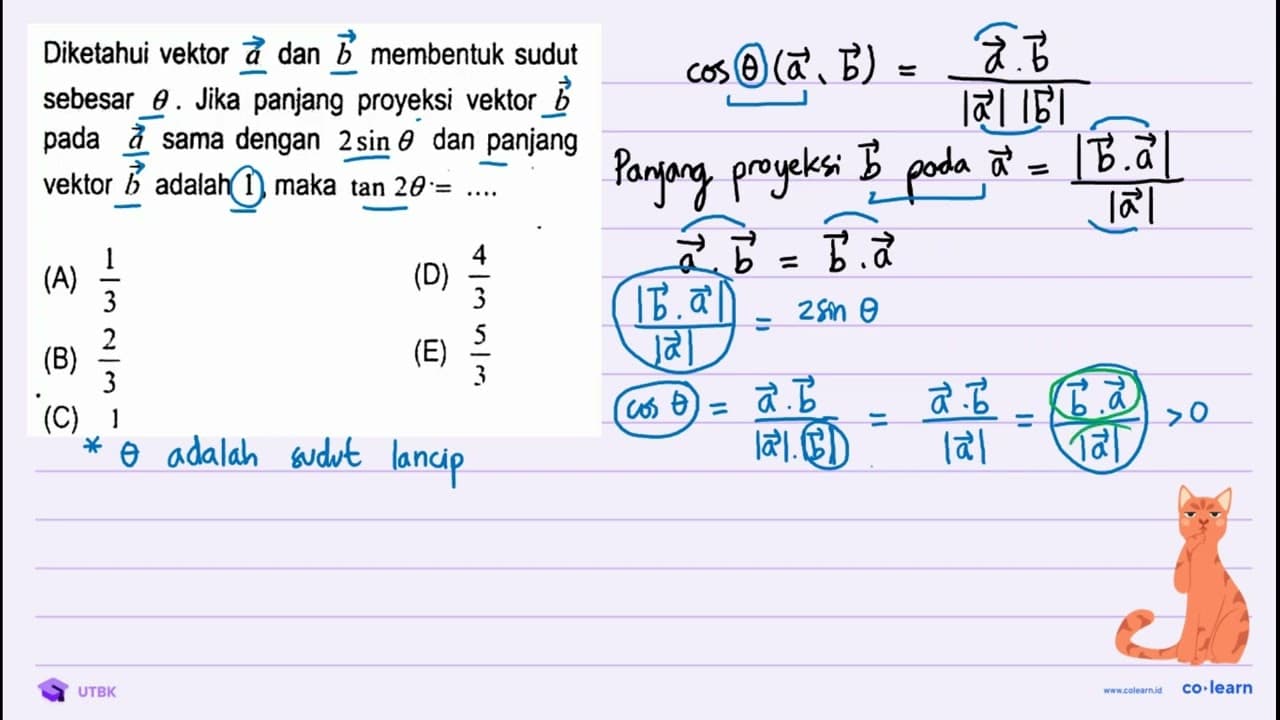 Diketahui vektor \vec{a} dan \vec{b} membentuk sudut
sebesar θ. Jika panjang proyeksi vektor \vec{b}
pada \vec{a} sama dengan 2 sin θ dan panjang
vektor \vec{b} adalah 1, maka tan 2θ = ....
(A) \frac{1}{3}
(B) \frac{2}{3}
(C) 1
(D) \frac{4}{3}
(E) \frac{5}{3}
* θ adalah sudut lancip
cos θ (\vec{a}, \vec{b}) = \frac{\vec{a}.\vec{b}}{|\vec{a}| |\vec{b}|}
Panjang proyeksi \vec{b} pada \vec{a} = \frac{|\vec{b}.\vec{a}|}{|\vec{a}|}
\vec{a}.\vec{b} = \vec{b}.\vec{a}
\frac{|\vec{b}.\vec{a}|}{|\vec{a}|} = 2 sin θ
cos θ = \frac{\vec{a}.\vec{b}}{|\vec{a}|.|\vec{b}|} = \frac{\vec{a}.\vec{b}}{|\vec{a}|} = \frac{\vec{b}.\vec{a}}{|\vec{a}|} > 0
UTBK
www.colearn.id
co·learn